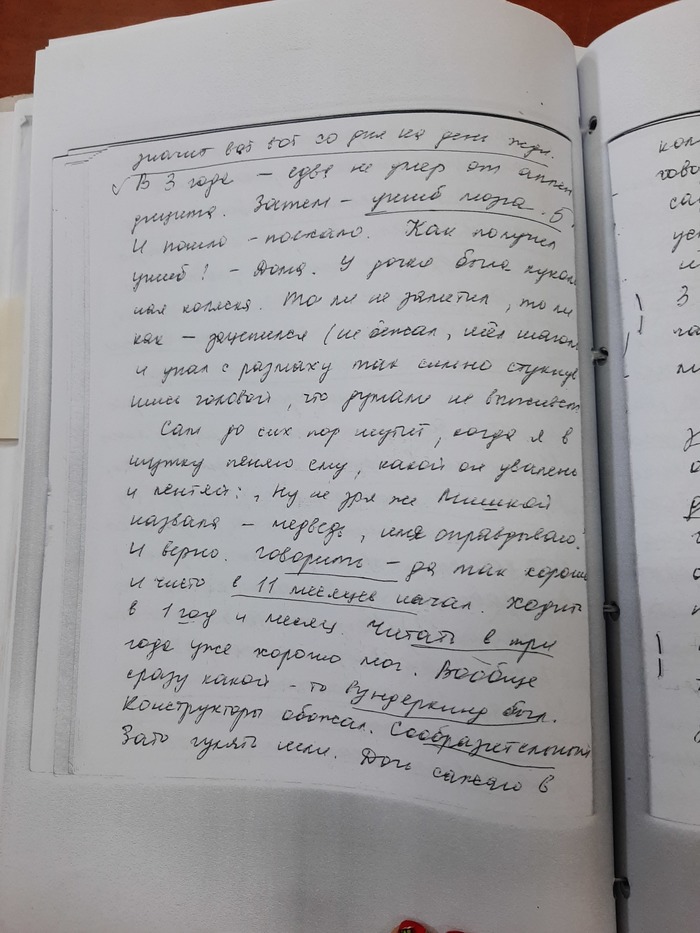 значит вот вот со дня на день жди.
В 3 года – едва не умер от аппен
дицита. Затем – ушиб мозга. б
И пошло – поехало. Как получил
ушиб? – Дома. У дочки была куколь
ная коляска. То ли не заметил, то ли
как – зацепился (не бежал, шёл шагом
и упал с размаху так сильно стукнув
шись головой, что думали не выживет.
Сам до сих пор шутит, когда я в
шутку пеняю ему, какой он увалень
и лентяй: Ну не зря же Мишкой
назвала – медведь, имя оправдываю.
И верно. Говорить – да так хорошо
и чисто в 11 месяцев начал. Ходить
в 1 год и месяц. Читать в три
года уже хорошо мог. Вообще
сразу какой-то вундеркинд был.
Конструкторы обожал. Сообразительный
Зато гулять шли. Дочь сажаю в
кол
гово
са
ус
и
3